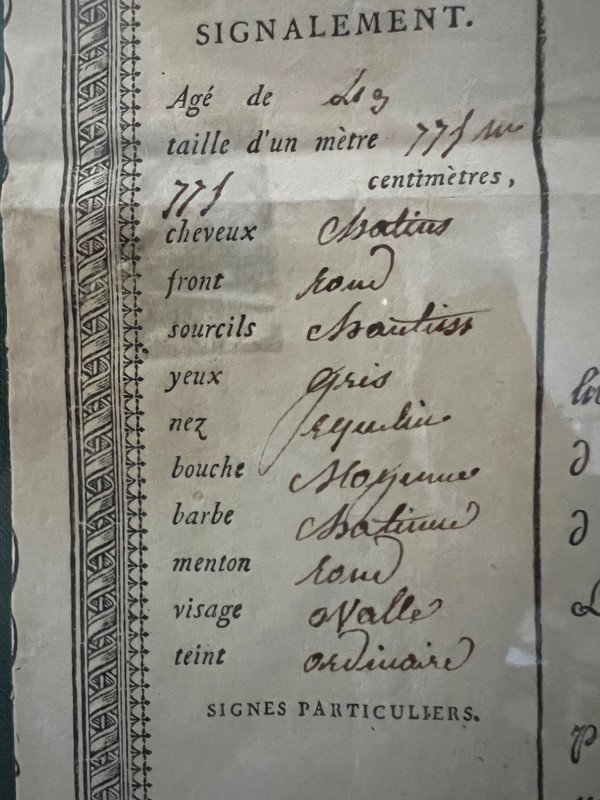 SIGNALEMENT.
Agé de
taille d'un mètre 775 m
centimètres,
775
cheveux Chatins
front rond
sourcils
yeux gris
nez equilin
bouche Moyenne
barbe Chatinne
menton rond
visage oValle
teint ordinaire
SIGNES PARTICULIERS.